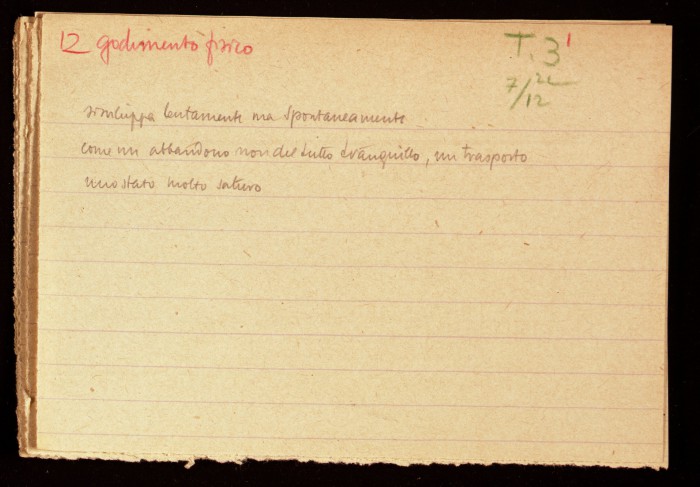 12 godimento fisico
T. 3 1
7/12 22
si sviluppa lentamente ma spontaneamente
come un abbandono non del tutto tranquillo, un trasporto
uno stato molto saturo